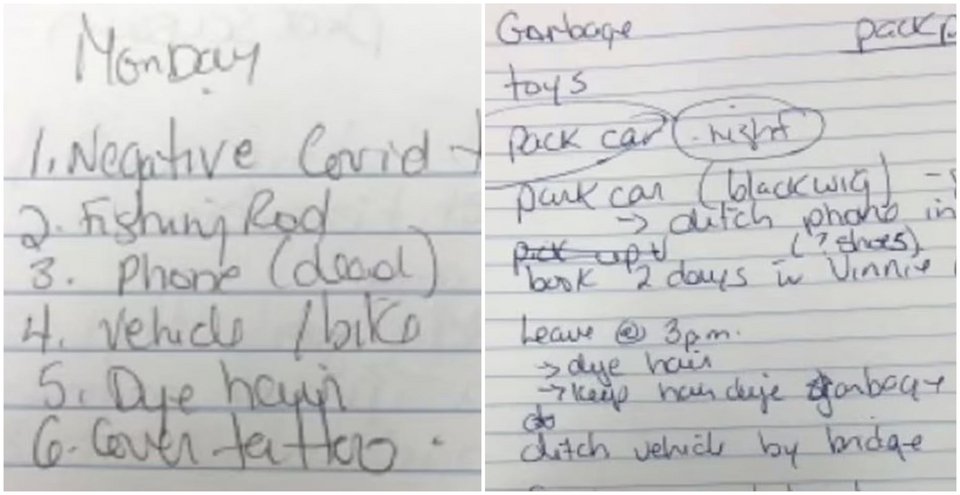 Monday
1. Negative Covid
2. Fishing Rod
3. Phone (dead)
4. Vehicle / bike
5. Dye hair
6. Cover tattoo
Garbage pack
toys
pack car night
park car (black wig) -
→ ditch phone in
(? shoes)
pick up
book 2 days in Vinnie
Leave @ 3pm.
→ dye hair
→ keep hair dye garbage
do
ditch vehicle by bridge